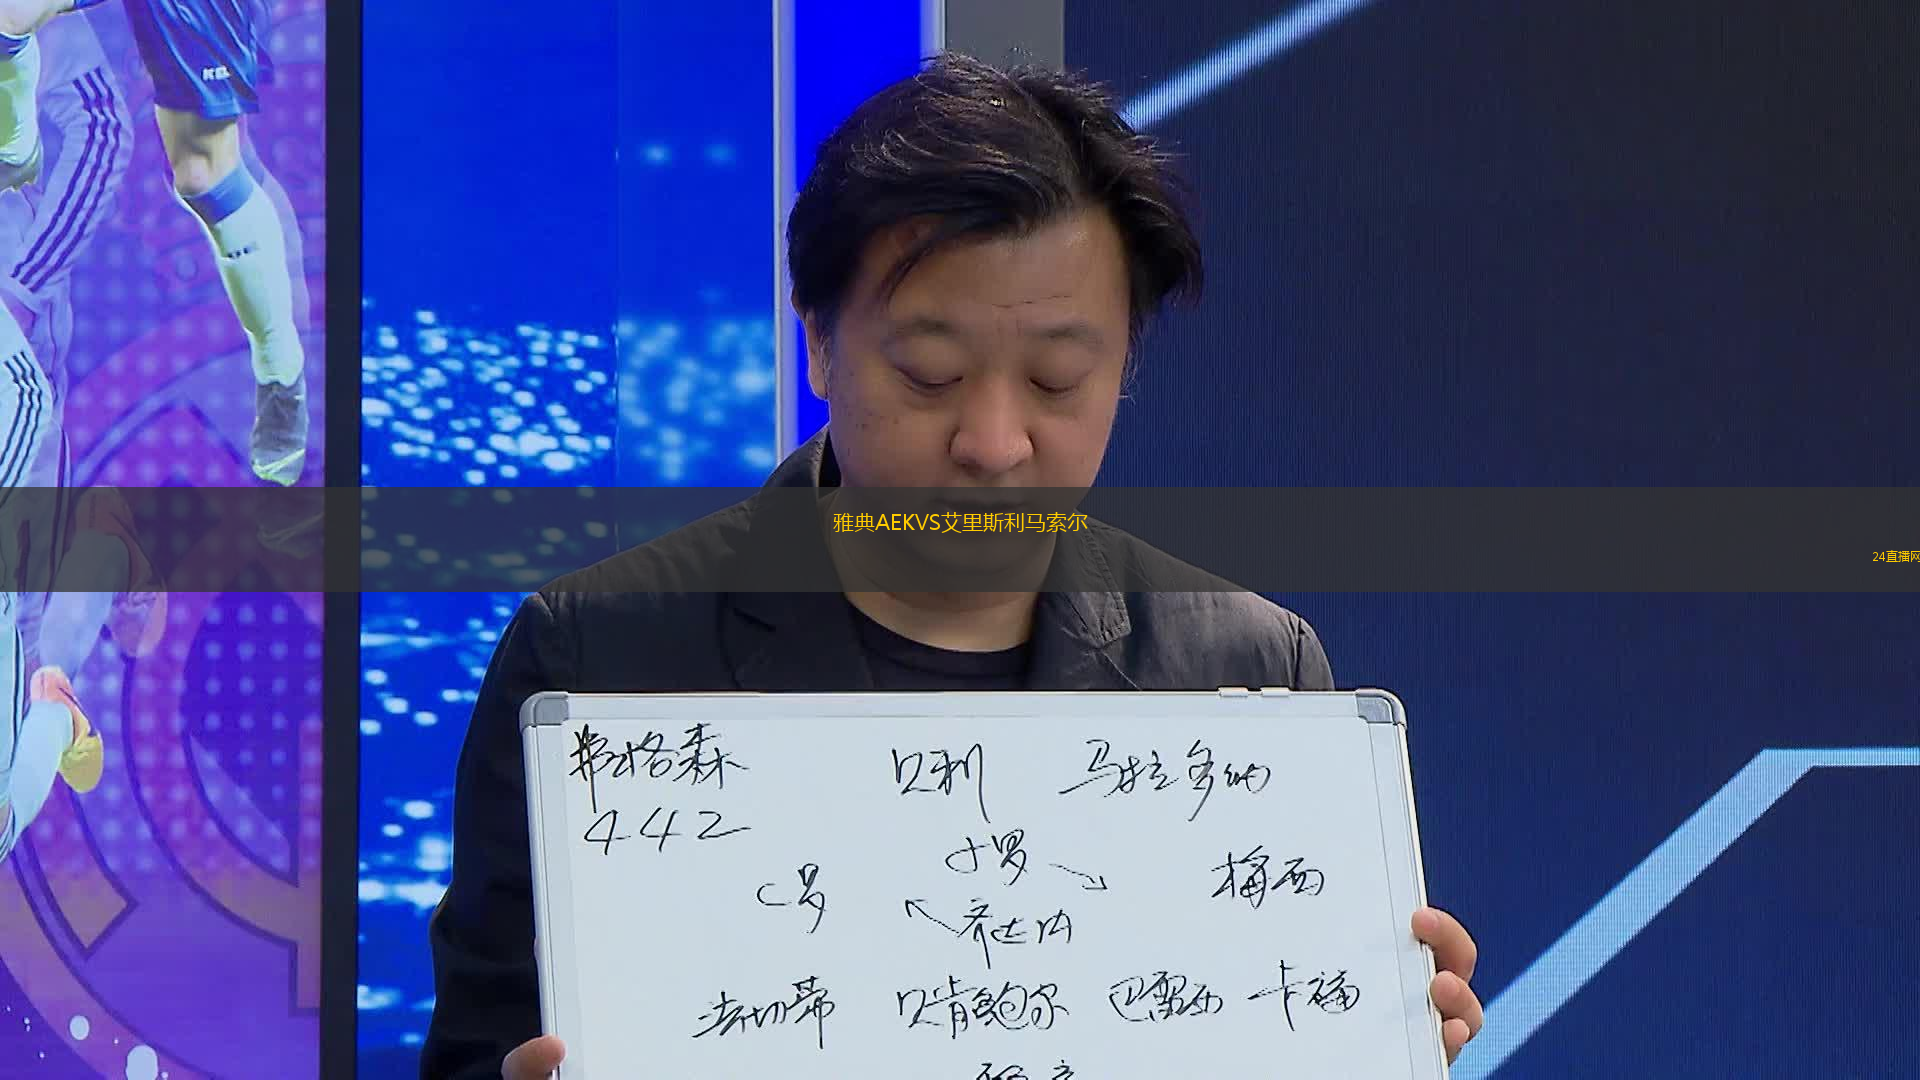 雅典AEKVS艾里斯利马索尔
24直播网
弗格森 贝利 马拉多纳
442
小罗
C罗 梅西
齐达内
法切蒂 贝肯鲍尔 巴雷西 卡福